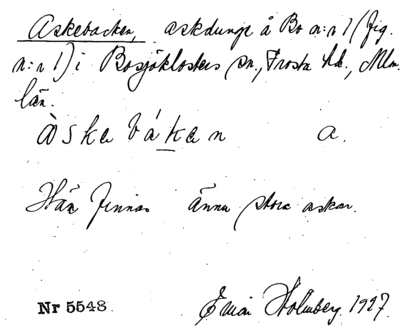 Askebacken, askdunge å Bo n:r 1 (fig.
n:r 1) i Bosjöklosters sn, Frosta hd., Mlm.
län.
àska bákan a.
Här finnas ännu stora askar.
Nr 5548. Einar Holmberg. 1927.